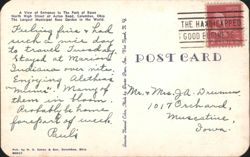 A View of Entrance to The Park of Roses
North High Street at Acton Road, Columbus, Ohio
The Largest Municipal Rose Garden in the World
Feeling fine & had
such a nice day
to travel Tuesday
Stayed at Marion
Indiana over nite.
Enjoying Alethas
"mums". Many of
them in bloom.
Probably be home
forepart of week
Ruth
THE HANDICAPPED
GOOD BUSINESS
POST CARD
Mr. & Mrs. J.A. Drumm
1017 Orchard,
Muscatine,
Iowa.